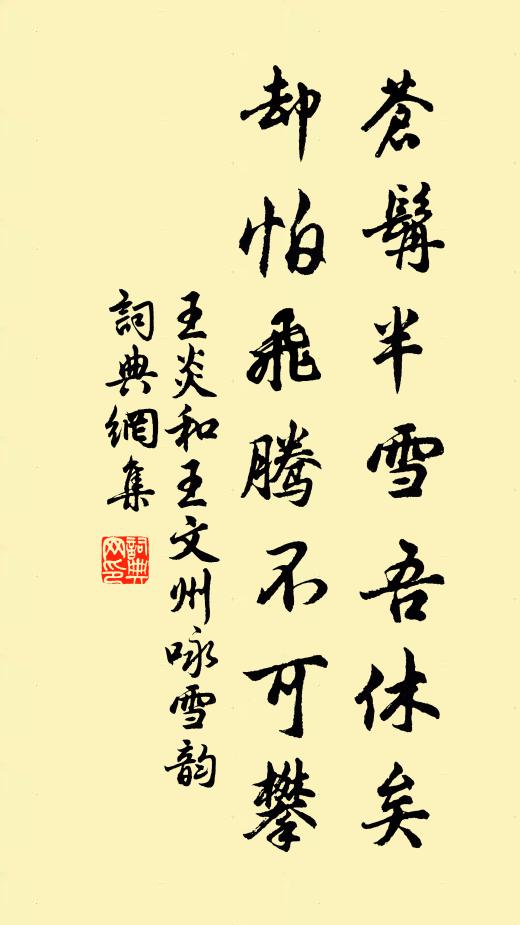 蒼髯半雪吾休矣
却怕飛騰不可攀
王炎和王文州咏雪韵
詞典網集
詞典網印